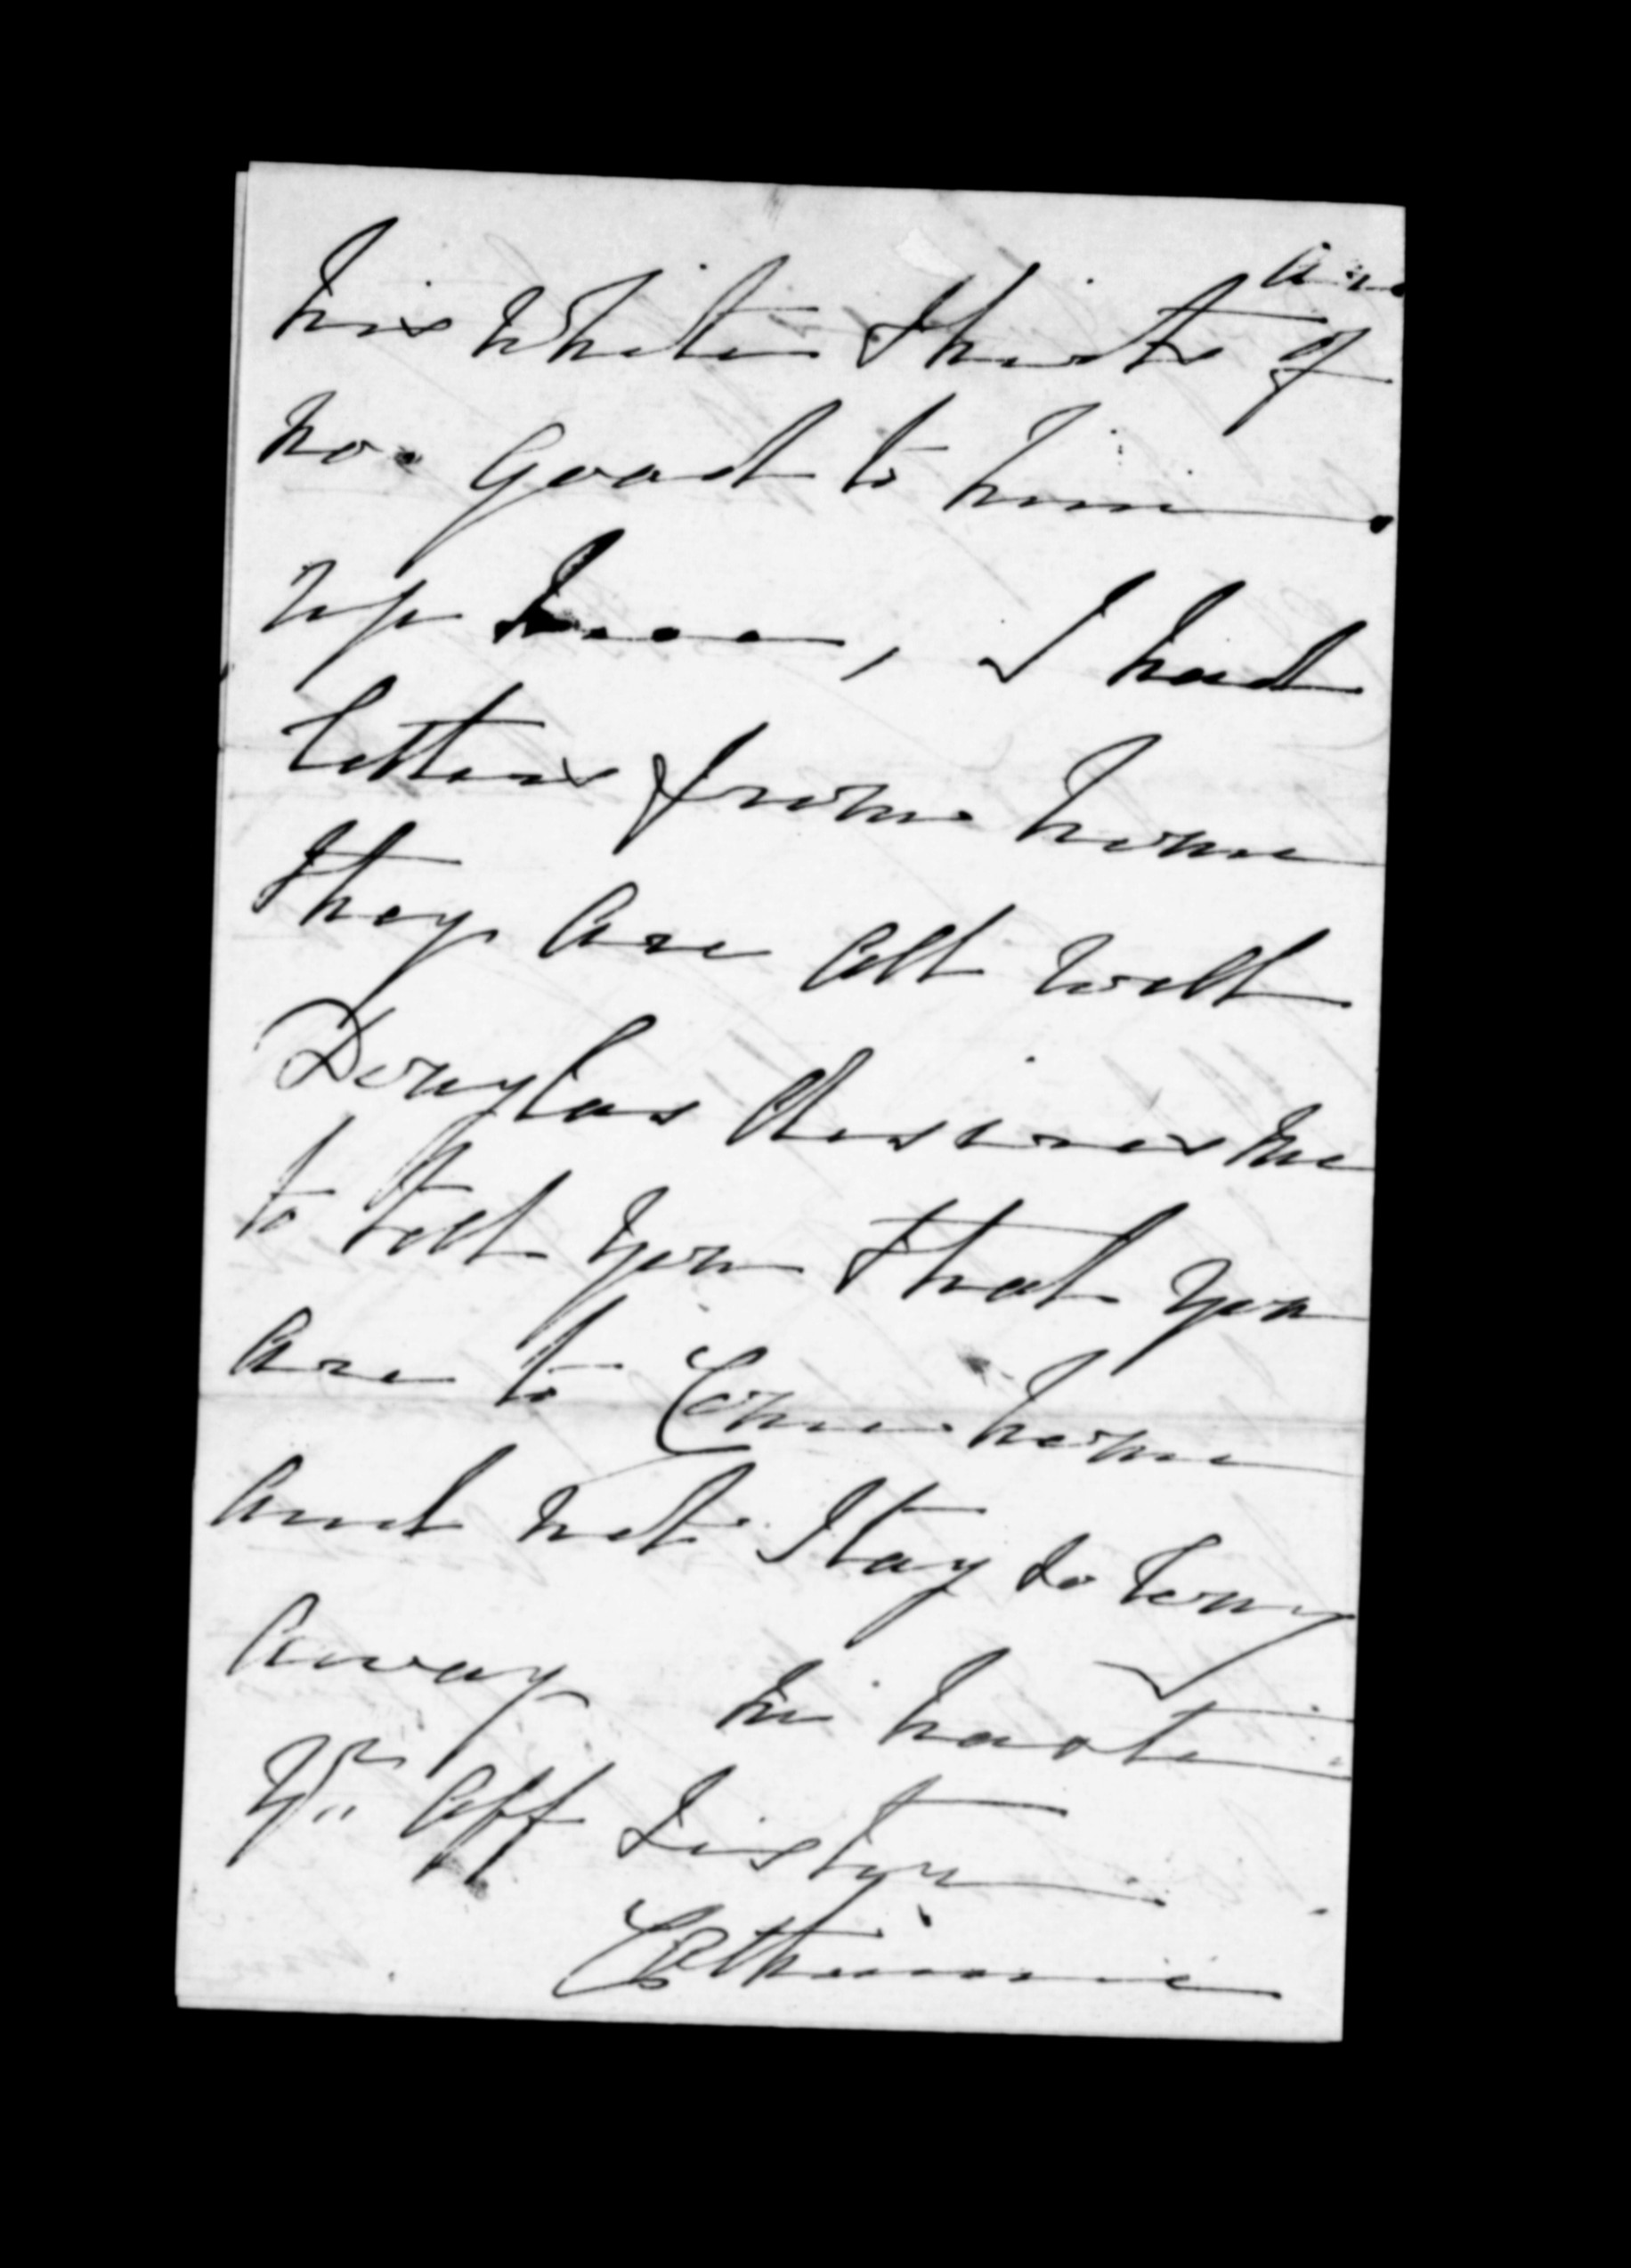 his white Shirts are of
no good to him
up here, I had
letters from home
they are all well
Douglas desires me
to tell you that you
are to Come home
and not Stay so long
away in haste
Yr aff Sister
Catherine